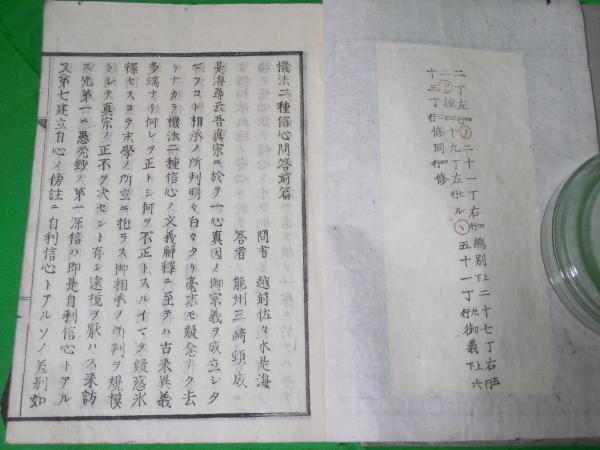 二丁左四行ノ二十一丁右四行總別上下二十七丁右五行
二ヨ種四十九丁左行ヒルヽ五十一丁左行御義上下六
十三丁二行修同四行修
機法二種信心問答前篇
問者 越前佐々木是海
答者 能州三崎頭成
是海尋云吾真宗ニ於テ一心真因ノ御宗義ヲ成立シタ
マフコリ相承ノ所判明々白々タリ毫末モ疑念ナク去
リナカラ機法二種信心ノ文義解釋ニ至テハ古来異義
多端ナリ何レヲ正トシ何ヲ不正トスルイマタ疑惑氷
釋セスヨテ末學ノ所立ニ抱ラス御相承ノ所判ヲ規模
トシテ真宗ノ正不ヲ決セント存シ遠境ヲ厭ハス来訪
ス先第一ニ愚禿鈔ス第一深信ハ即是自利信心トアル
又第七建立自心ノ傍註ニ自利信心トアルソノ差別如